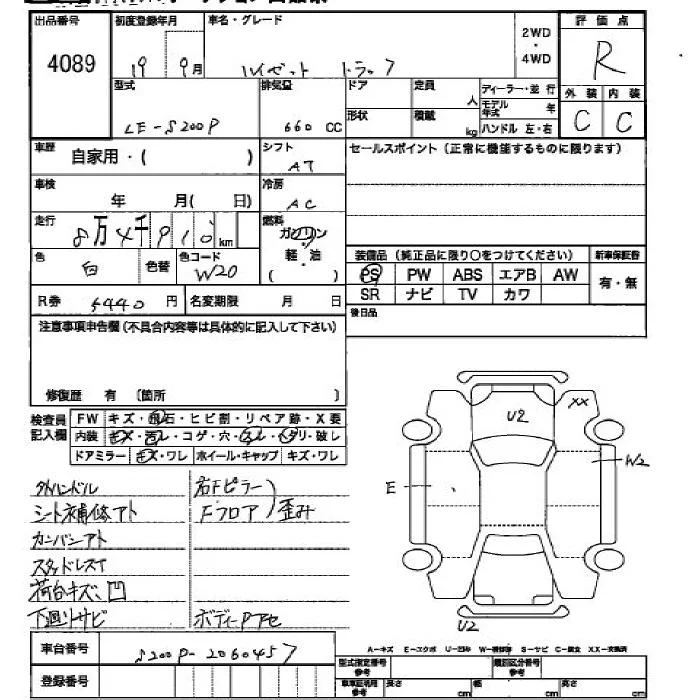 出品番号 初度登録年月 車名・グレード 2WD・4WD 評価点
4089 19 9月 ハイゼット トラック R
型式 排気量 ドア 定員 人 ディーラー・並行 外装 内装
LE-S200P 660 CC 形状 積載 kg モデル年式 年 ハンドル 左・右 C C
車歴 自家用・( ) シフト AT セールスポイント(正常に機能するものに限ります)
車検 年 月( 日) 冷房 AC
走行 8万4千910km 燃料 ガソリン 軽・油 ( )
装備品(純正品に限り○をつけてください) 新車保証書
色 白 色替 色コード W20
PS PW ABS エアB AW 有・無
SR ナビ TV カワ
R券 5440円 名変期限 月 日
後日品
注意事項申告欄(不具合内容等は具体的に記入して下さい)
修復歴 有 〔箇所 〕
検査員記入欄 FW キズ・飛石・ヒビ割・リペア跡・X要
内装 キズ・汚レ・コゲ・穴・スレ・ヘタリ・破レ
ドアミラー キズ・ワレ ホイール・キャップ キズ・ワレ
U2 XX
E W2
U2
外ハンドル 右Fピラー
シート補修アト Fフロア 歪み
カンバンアト
スタッドレス
荷台キズ、凹
下廻りサビ
A-キズ E-エクボ U-凹み W-補修跡 S-サビ C-腐食 XX-交換済
車台番号 S200P-2060457
型式指定番号 参考 類別区分番号 参考
登録番号 車車証明用 参考 長さ cm 幅 cm 高さ cm